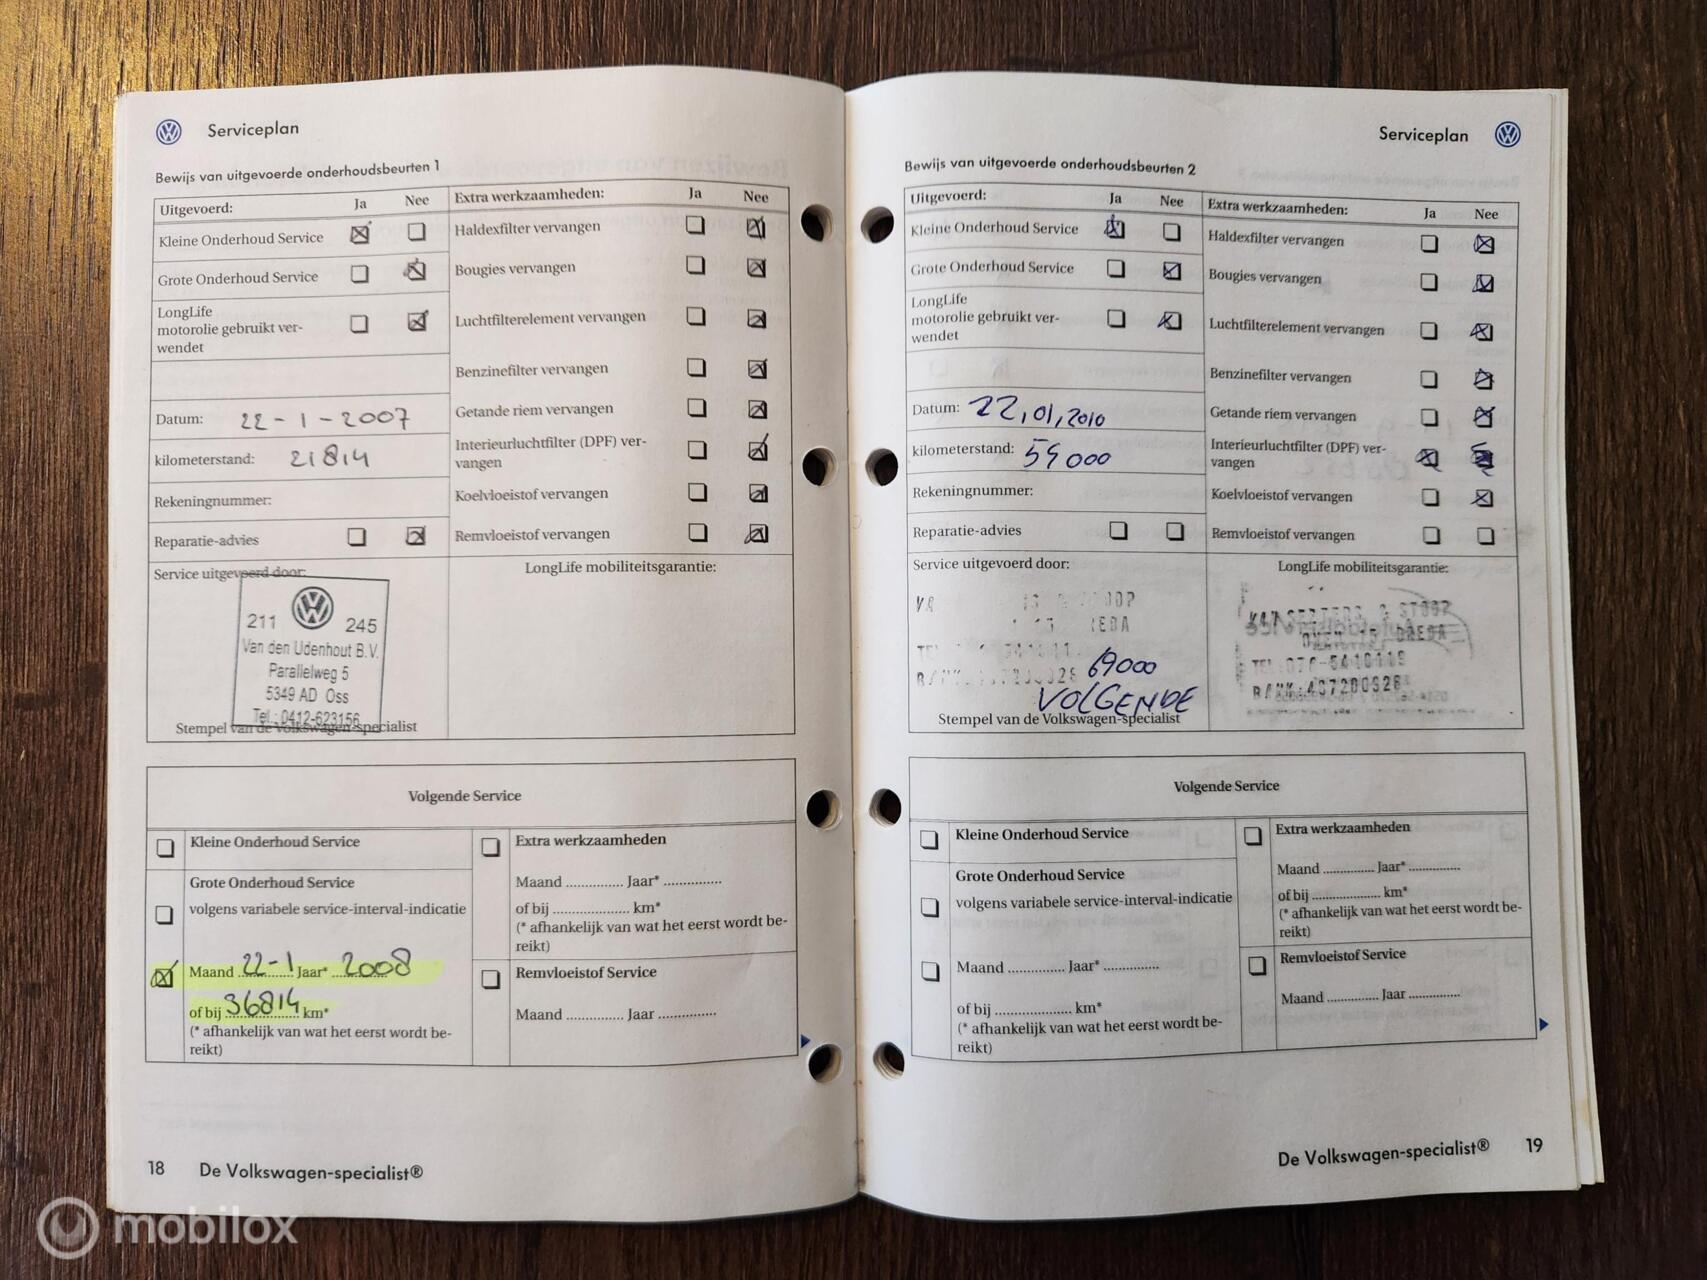 Serviceplan
Bewijs van uitgevoerde onderhoudsbeurten 1
Uitgevoerd: Ja Nee
Kleine Onderhoud Service
Grote Onderhoud Service
LongLife
motorolie gebruikt ver-
wendet
Datum: 22-1-2007
kilometerstand: 21814
Rekeningnummer:
Reparatie-advies
Extra werkzaamheden: Ja Nee
Haldexfilter vervangen
Bougies vervangen
Luchtfilterelement vervangen
Benzinefilter vervangen
Getande riem vervangen
Interieurluchtfilter (DPF) ver-
vangen
Koelvloeistof vervangen
Remvloeistof vervangen
Service uitgevoerd door:
211 245
Van den Udenhout B.V.
Parallelweg 5
5349 AD Oss
Tel.: 0412-623156
Stempel van de Volkswagen-specialist
LongLife mobiliteitsgarantie:
Volgende Service
Kleine Onderhoud Service
Grote Onderhoud Service
volgens variabele service-interval-indicatie
Maand 22-1 Jaar* 2008
of bij 36814 km*
(* afhankelijk van wat het eerst wordt be-
reikt)
Extra werkzaamheden
Maand .............. Jaar* ..............
of bij .................... km*
(* afhankelijk van wat het eerst wordt be-
reikt)
Remvloeistof Service
Maand .............. Jaar ..............
18 De Volkswagen-specialist®
Serviceplan
Bewijs van uitgevoerde onderhoudsbeurten 2
Uitgevoerd: Ja Nee
Kleine Onderhoud Service
Grote Onderhoud Service
LongLife
motorolie gebruikt ver-
wendet
Datum: 22,01,2010
kilometerstand: 59000
Rekeningnummer:
Reparatie-advies
Extra werkzaamheden: Ja Nee
Haldexfilter vervangen
Bougies vervangen
Luchtfilterelement vervangen
Benzinefilter vervangen
Getande riem vervangen
Interieurluchtfilter (DPF) ver-
vangen
Koelvloeistof vervangen
Remvloeistof vervangen
Service uitgevoerd door:
69000
VOLGENDE
Stempel van de Volkswagen-specialist
LongLife mobiliteitsgarantie:
& STOOP
BREDA
TEL:076-5410119
BANK:497280628
Volgende Service
Kleine Onderhoud Service
Grote Onderhoud Service
volgens variabele service-interval-indicatie
Maand .............. Jaar* ..............
of bij .................... km*
(* afhankelijk van wat het eerst wordt be-
reikt)
Extra werkzaamheden
Maand .............. Jaar* ..............
of bij .................... km*
(* afhankelijk van wat het eerst wordt be-
reikt)
Remvloeistof Service
Maand .............. Jaar ..............
De Volkswagen-specialist® 19
mobilox